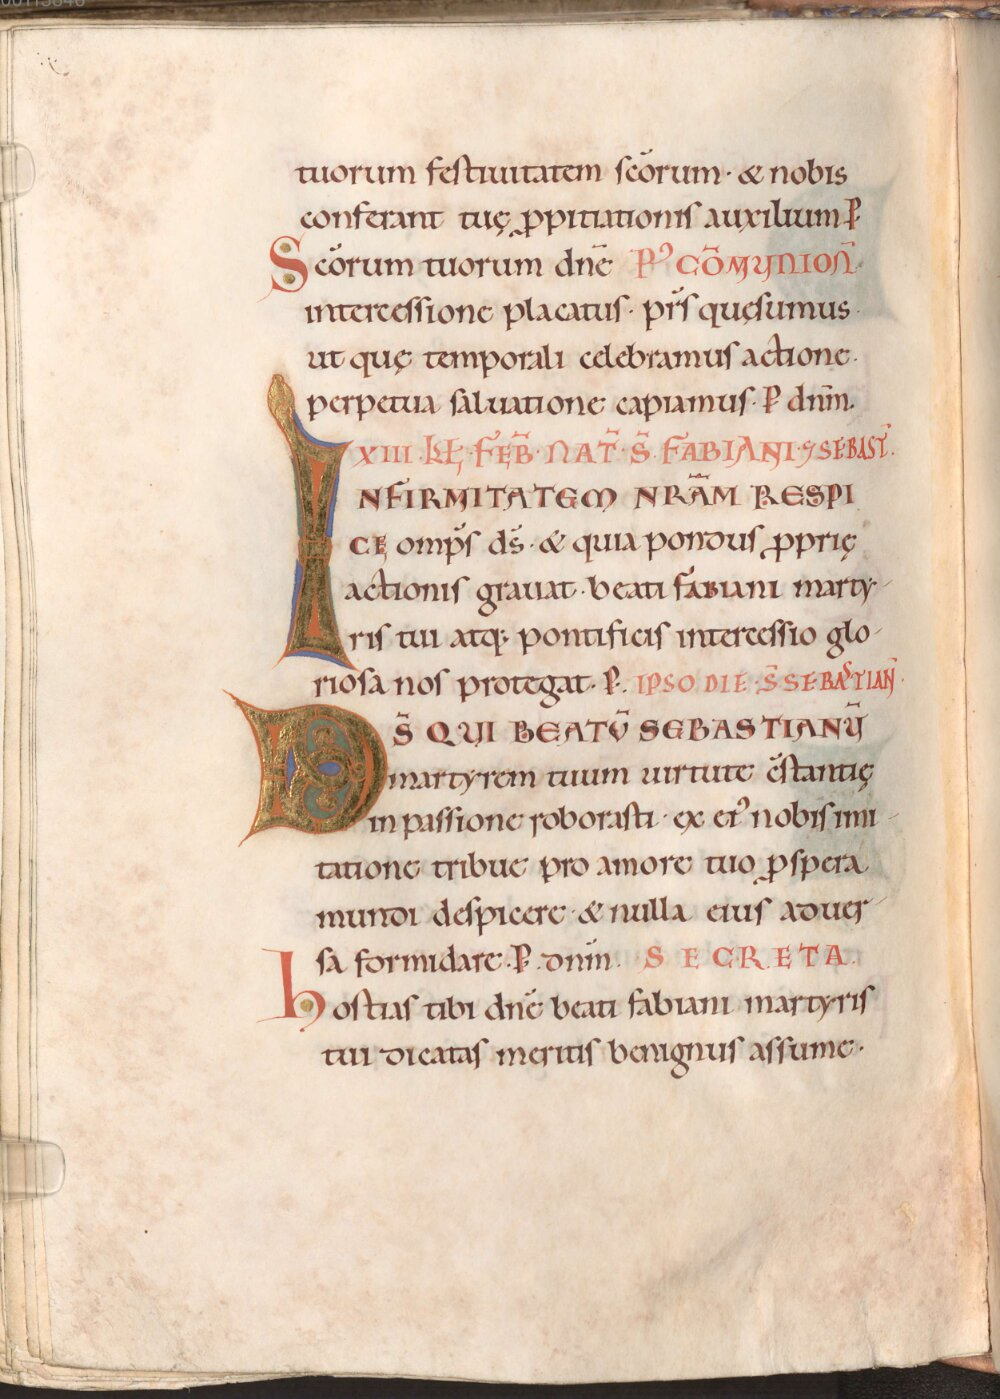 tuorum festiuitatem sc̄orum · & nobis
conferant tuę ꝓpitiationis auxilium P̄
Sc̄orum tuorum dn̄e P' CŌMUNION̄
intercessione placatus · pr̄s quęsumus
ut quę temporali celebramus actione ·
perpetua saluatione capiamus · P̄ dn̄m.
XIII · KL̄ · FEB̄ · NAT̄ · S̄ · FABIANI · & SEBAST̄ ·
INFIRMITATEM NR̄AM RESPI
CE omp̄s ds̄ · & quia pondus ꝓprię
actionis grauat · beati fabiani marty-
ris tui atq; pontificis intercessio glo-
riosa nos protegat · P̄. IPSO DIE · S̄ SEBASTIAN̄ ·
DS̄ QUI BEATŪ SEBASTIANŪ
martyrem tuum uirtute c̄stantię
in passione roborasti · ex ei' nobis imi-
tatione tribue pro amore tuo ꝓspera
mundi despicere · & nulla eius aduer-
sa formidare · P̄. dn̄m · SECRETA ·
hostias tibi dn̄e beati fabiani martyris
tui dicatas meritis benignus assume ·